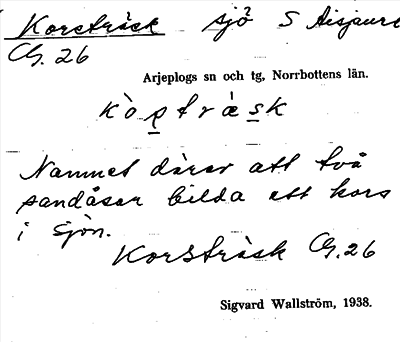 Korsträsk sjö S Aisjaure
G. 26
Arjeplogs sn och tg, Norrbottens län.
Namnet därav att två
sandåsar bilda ett kors
i sjön.
Korsträsk G. 26
Sigvard Wallström, 1938.